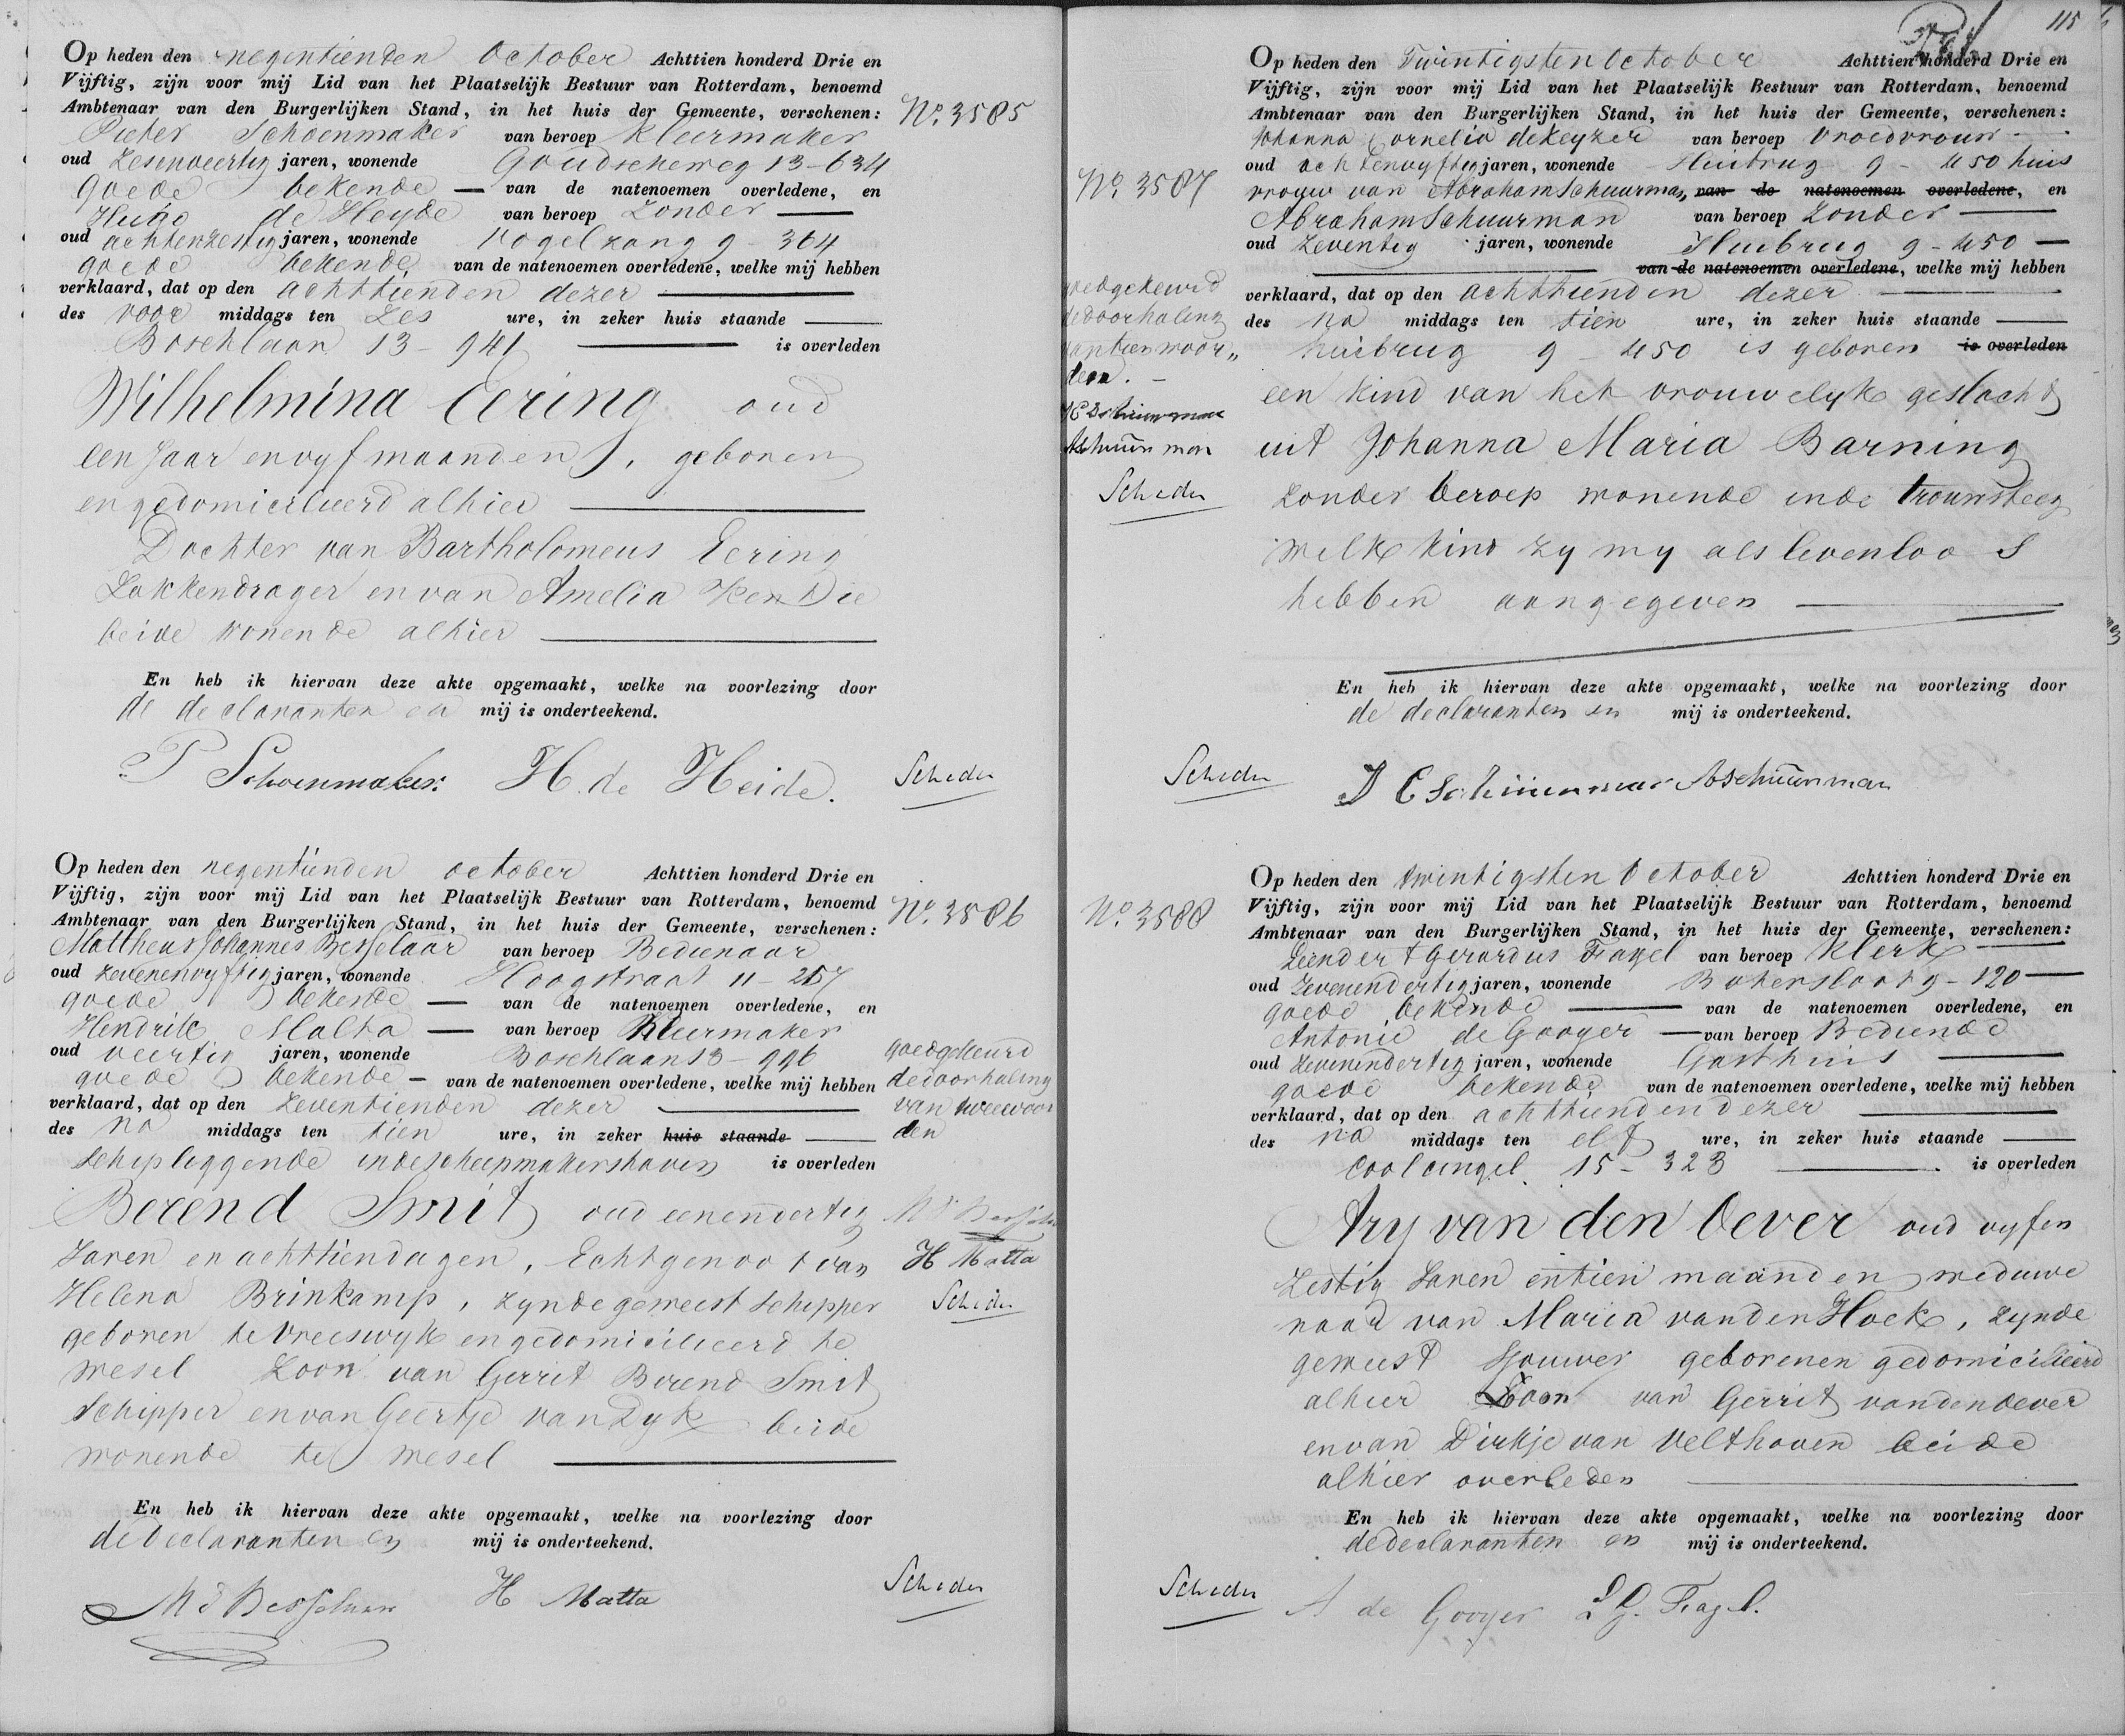 Op heden den negentienden October Achttien honderd Drie en
Vijftig, zijn voor mij Lid van het Plaatselijk Bestuur van Rotterdam, benoemd
Ambtenaar van den Burgerlijken Stand, in het huis der Gemeente, verschenen:
No. 3585
Pieter Schoenmaker van beroep Kleermaker
oud Zesenveertig jaren, wonende Goudscheweg 13-634
goede bekende — van de natenoemen overledene, en
Hugo de Heyde van beroep Zonder —
oud achtenzestig jaren, wonende Vogelzang 9-364
goede bekende van de natenoemen overledene, welke mij hebben
verklaard, dat op den achttienden dezer —
des voor middags ten Zes ure, in zeker huis staande —
Boschlaan 13-941 — is overleden
Wilhelmina Eering oud
een Jaar en vyf maanden, geboren
en gedomicilieerd alhier —
Dochter van Bartholomeus Eering
Zakkendrager en van Amelia Kendie
beide wonende alhier —
En heb ik hiervan deze akte opgemaakt, welke na voorlezing door
de declaranten en mij is onderteekend.
P Schoenmaker. H. de Heide. Scheder
Op heden den negentienden october Achttien honderd Drie en
Vijftig, zijn voor mij Lid van het Plaatselijk Bestuur van Rotterdam, benoemd
Ambtenaar van den Burgerlijken Stand, in het huis der Gemeente, verschenen:
No. 3586
Mattheus Johannes Besselaar van beroep Bedienaar
oud zevenenvyftig jaren, wonende Hoogstraat 11-257
goede bekende — van de natenoemen overledene, en
Hendrik Matta — van beroep Kleermaker
oud veertig jaren, wonende Boschlaan 13-996
goede bekende — van de natenoemen overledene, welke mij hebben
verklaard, dat op den Zeventienden dezer —
des na middags ten tien ure, in zeker huis staande —
Schip liggende inde scheepmakershaven is overleden
goedgekeurd
de doorhaling
van twee woor
den
Berend Smit oud eenendertig
Jaren en achttien dagen, Echtgenoot van
Helena Brinkamp, zynde geweest Schipper
geboren te Vreeswyk en gedomicilieerd te
Wesel Zoon van Gerrit Berend Smit
Schipper en van Geertje van Dyk beide
wonende te Wesel —
MJ Besselaar
H Matta
Scheder
En heb ik hiervan deze akte opgemaakt, welke na voorlezing door
de declaranten en mij is onderteekend.
MJ Besselaar H Matta Scheder
115
Op heden den Twintigsten October Achttien honderd Drie en
Vijftig, zijn voor mij Lid van het Plaatselijk Bestuur van Rotterdam, benoemd
Ambtenaar van den Burgerlijken Stand, in het huis der Gemeente, verschenen:
No. 3587
Johanna Cornelia de Keyzer van beroep Vroedvrouw
oud achtenvyftig jaren, wonende Huibrug 9-450 huis
vrouw van Abraham Schuurman, van de natenoemen overledene, en
Abraham Schuurman van beroep Zonder —
oud Zeventig jaren, wonende Huibrug 9-450 —
— van de natenoemen overledene, welke mij hebben
verklaard, dat op den achttienden dezer —
des na middags ten tien ure, in zeker huis staande —
huibrug 9-450 is geboren is overleden
een kind van het vrouwelyk geslacht
uit Johanna Maria Barning
zonder beroep wonende inde trouwsteeg
welk kind zy my als levenloos
hebben aangegeven —
goedgekeurd
de doorhaling
van tien woor„
den. —
JC Schuurman
A Schuurman
Scheder
En heb ik hiervan deze akte opgemaakt, welke na voorlezing door
de declaranten en mij is onderteekend.
Scheder J C Schuurman A Schuurman
Op heden den twintigsten October Achttien honderd Drie en
Vijftig, zijn voor mij Lid van het Plaatselijk Bestuur van Rotterdam, benoemd
Ambtenaar van den Burgerlijken Stand, in het huis der Gemeente, verschenen:
No. 3588
Leendert Gerardus Fagel van beroep Klerk —
oud Zevenendertig jaren, wonende Bakersloot 9-120 —
goede bekende — van de natenoemen overledene, en
Antonie de Gooyer — van beroep Bediende
oud Zevenendertig jaren, wonende Gasthuis —
goede bekende van de natenoemen overledene, welke mij hebben
verklaard, dat op den achttienden dezer —
des na middags ten elf ure, in zeker huis staande —
Coolcingel 15-323 — is overleden
Ary van den Oever oud vyfen
Zestig Jaren en tien maanden weduwe
naar van Maria van den Hoek, zynde
geweest Sjouwer geboren en gedomicilieerd
alhier Zoon van Gerrit van den Oever
en van Dirkje van Velthoven beide
alhier overleden —
En heb ik hiervan deze akte opgemaakt, welke na voorlezing door
de declaranten en mij is onderteekend.
Scheder A de Gooyer LG. Fagel.